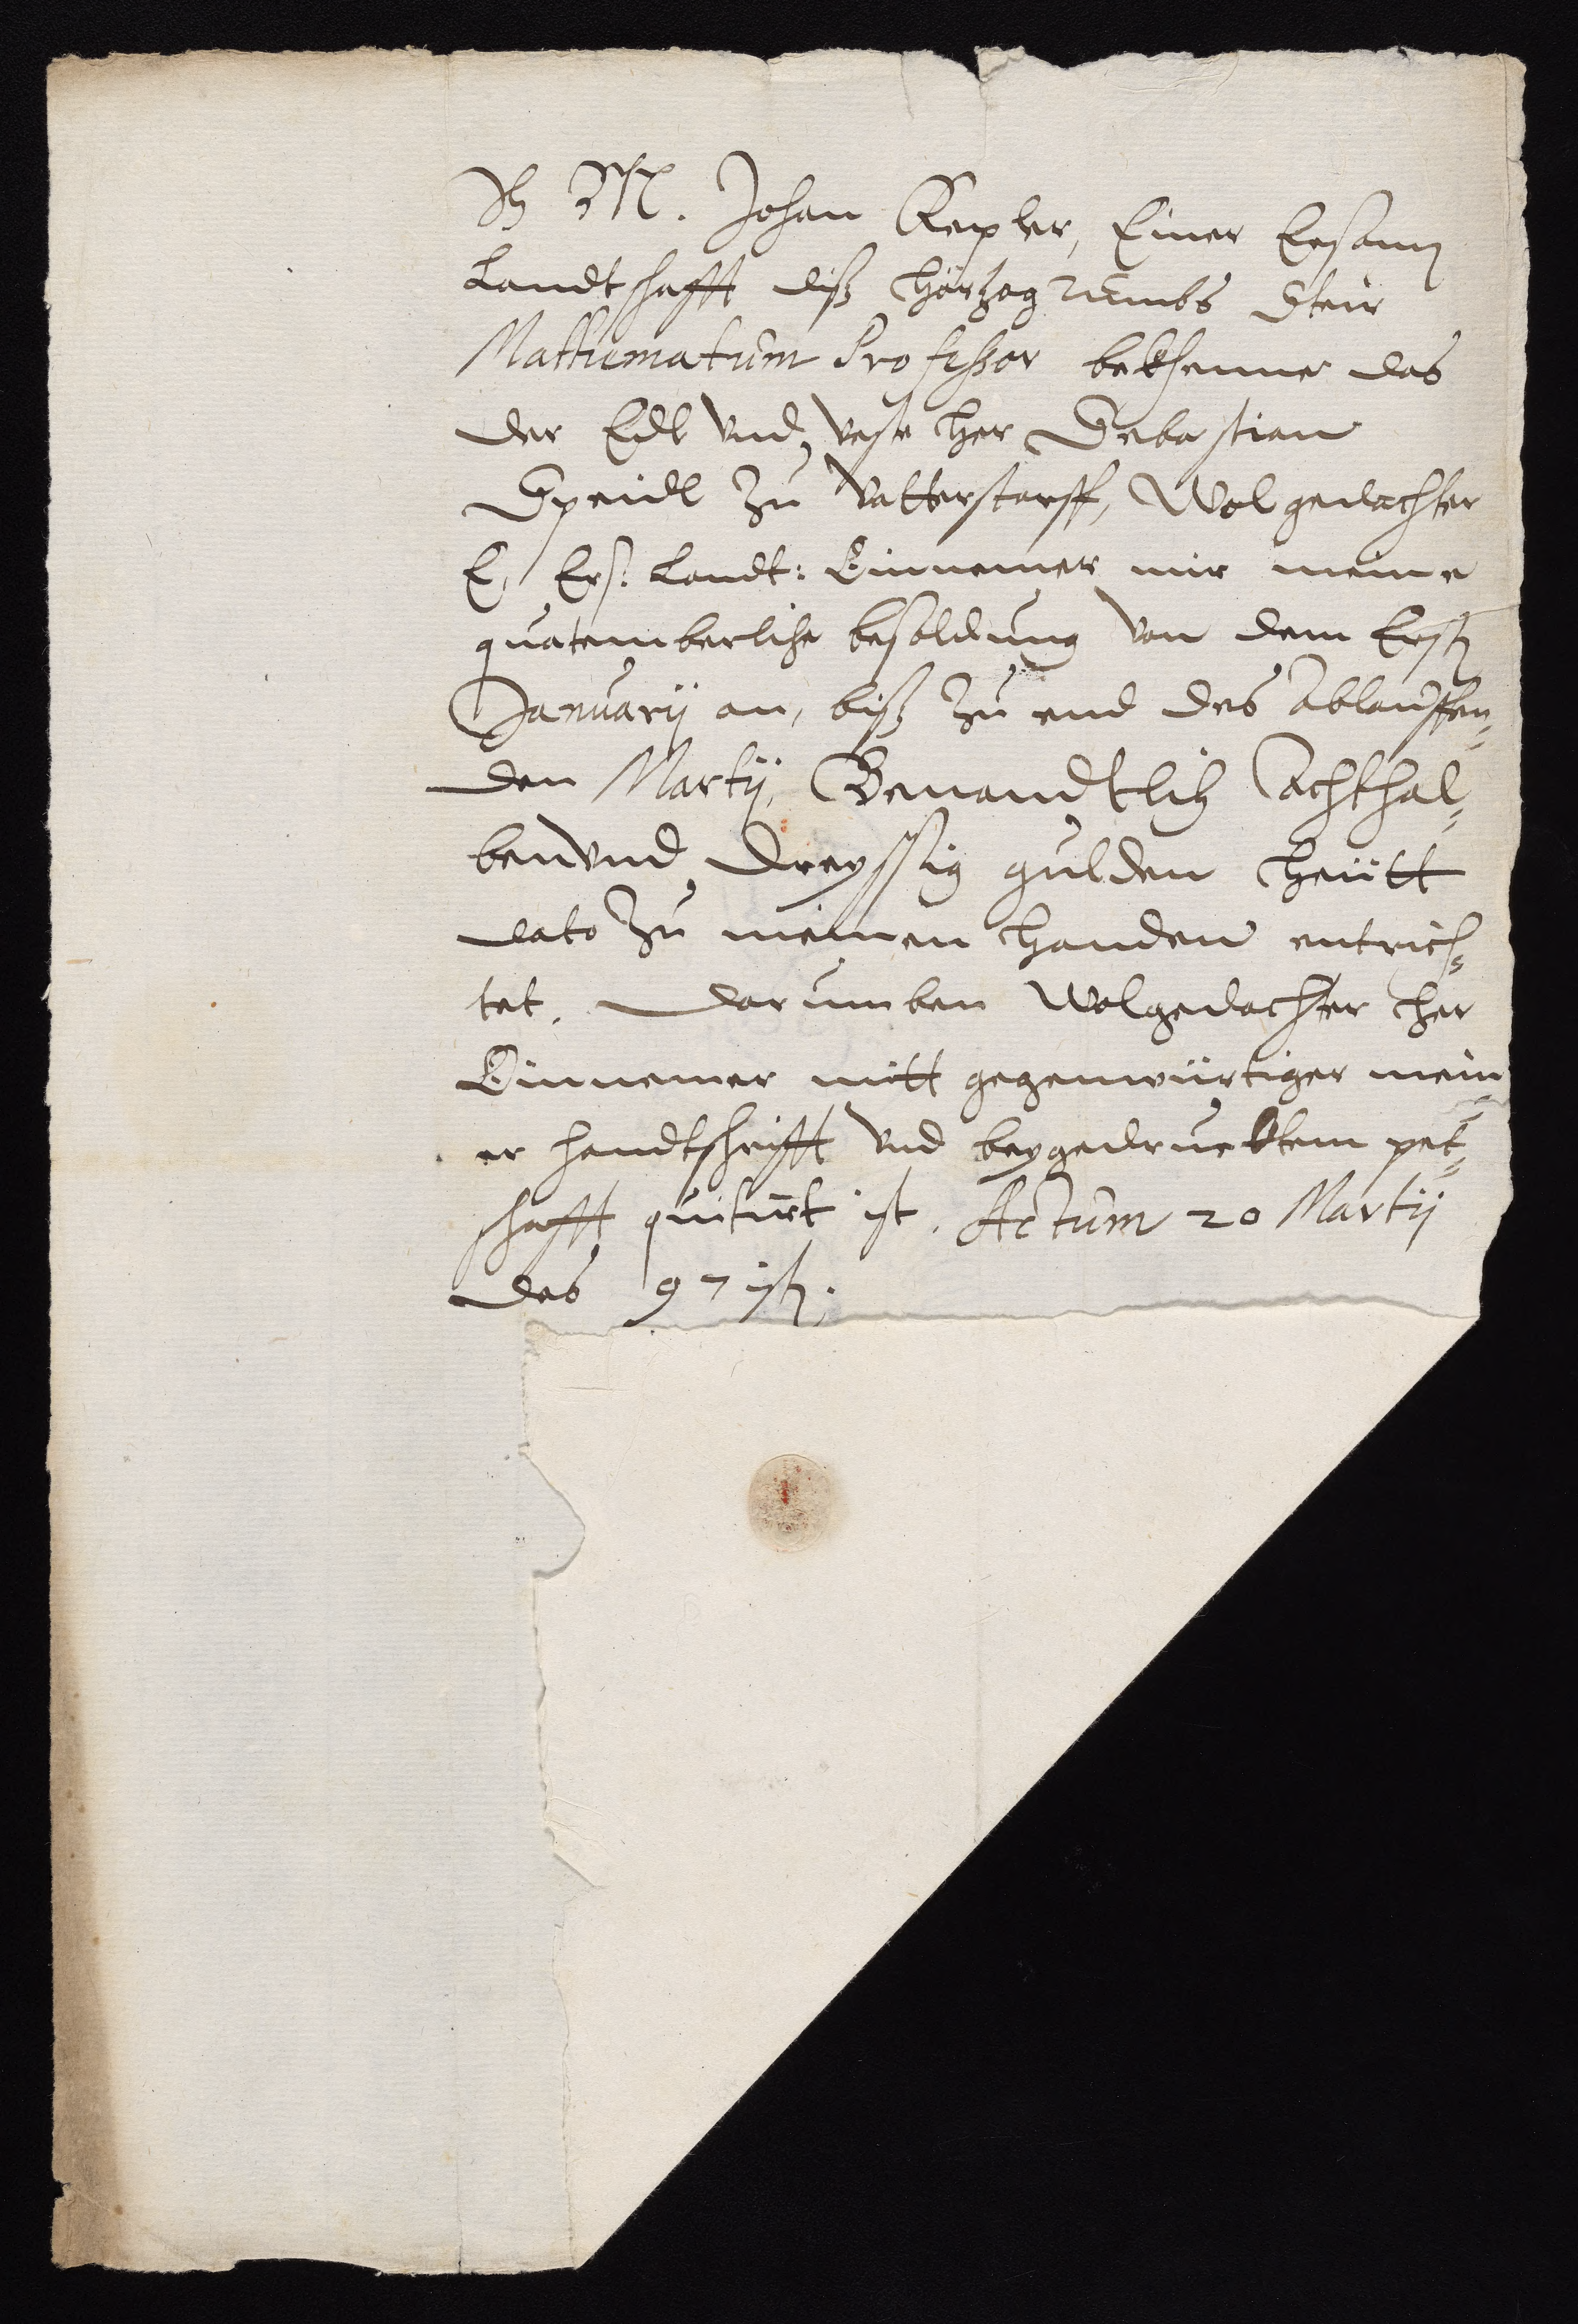 Ich M. Johan Kepler, Einer Ersamen
Landtschafft diß hörzogtumbs Steir
Mathematum Professor bekhenne das
der Edl vnd veste her Sebastian
Speidl zu Vatterstorff, Wolgedachter
E. Ers. Landt: Einnemer mir meine
quatemberliche besoldung von dem Ersten
Januarij an, biß zu end des Ablauffen=
den Martij, Benandtlich Achthal=
benvnd dreyssig gulden heütt
dato zu meinen handen entrich=
tet. Darumben Wolgedachter her
Einnemer mitt gegenwürtiger mein=
er handtschrifft vnd beygedrucktem pet=
schafft quitirt ist. Actum 20 Martij
des 97isten.